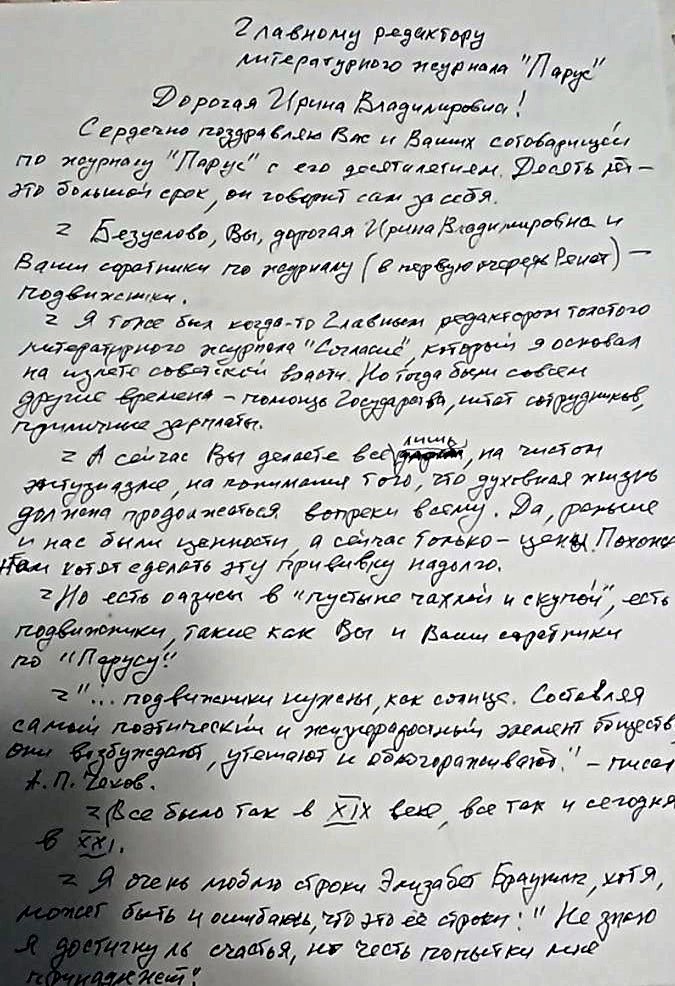 Главному редактору
литературного журнала "Парус"
Дорогая Ирина Владимировна!
Сердечно поздравляю Вас и Ваших сотоварищей
по журналу "Парус" с его десятилетием. Десять лет –
это большой срок, он говорит сам за себя.
Безусловно, Вы, дорогая Ирина Владимировна и
Ваши соратники по журналу (в первую очередь Ренат) –
подвижники.
Я тоже был когда-то Главным редактором толстого
литературного журнала "Согласие", который я основал
на излёте советской власти. Но тогда были совсем
другие времена – помощь Государства, штат сотрудников,
приличные зарплаты.
А сейчас Вы делаете всё лишь на чистом
энтузиазме, на понимании того, что духовная жизнь
должна продолжаться вопреки всему. Да, раньше
у нас были ценности, а сейчас только – цены. Похоже
нам хотят сделать эту прививку надолго.
Но есть оазисы в "пустыне чахлой и скупой", есть
подвижники, такие как Вы и Ваши соратники
по "Парусу".
"... подвижники нужны, как солнце. Составляя
самый поэтический и жизнерадостный элемент общества,
они возбуждают, утешают и облагораживают." – писал
А. П. Чехов.
Всё было так в XIX веке, всё так и сегодня
в XXI.
Я очень люблю строки Элизабет Браунинг, хотя,
может быть и ошибаюсь, что это её строки: "Не знаю
я достигну ль счастья, но честь попытки мне
принадлежит".